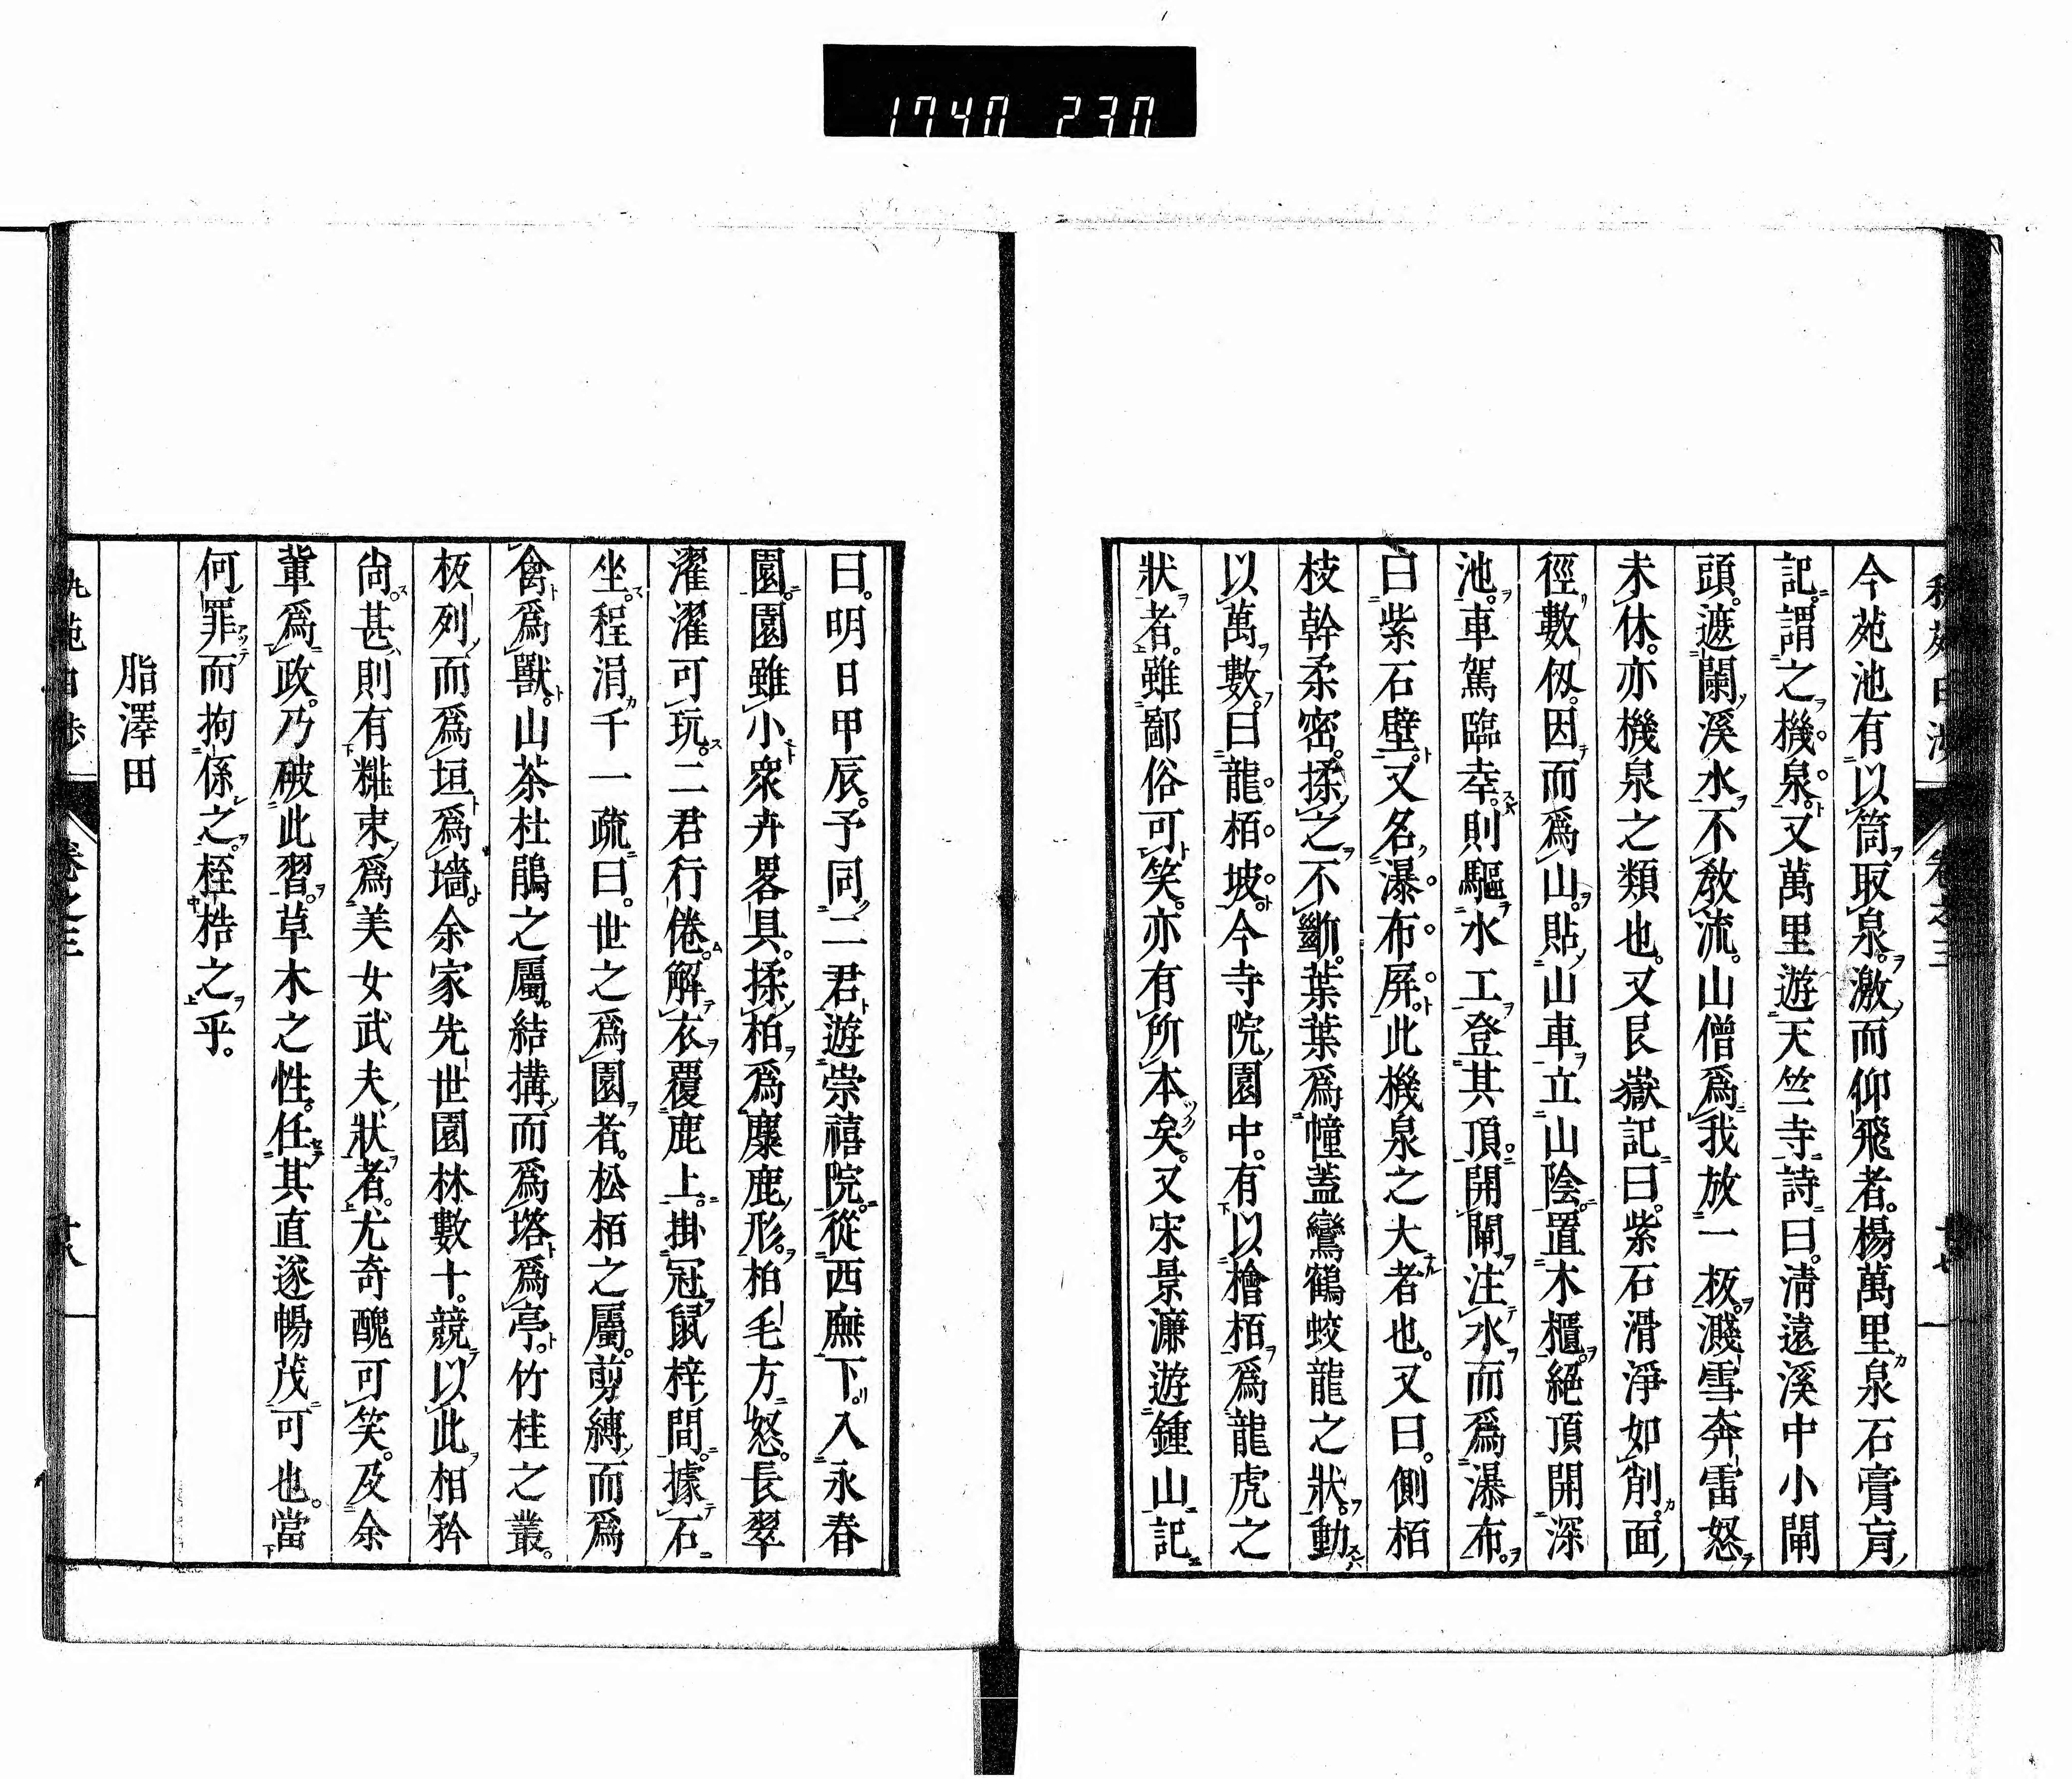 1740 230
今苑池有以筒取泉。激而仰飛者。楊萬里泉石膏肓
記。謂之機泉。又萬里遊天竺寺詩曰。淸遠溪中小閘
頭。遮闌溪水不敎流。山僧爲我放一板。濺雪奔雷怒
未休。亦機泉之類也。又艮嶽記曰。紫石滑淨如削。面
徑數仭。因而爲山。貼山車立山陰。置木櫃。絕頂開深
池。車駕臨幸。則驅水工登其頂。開閘注水而爲瀑布。
曰紫石壁。又名瀑布屏。此機泉之大者也。又曰。側栢
枝幹柔密。揉之不斷。葉葉爲幢蓋鸞鶴蛟龍之狀。動
以萬數。曰龍栢坡。今寺院園中。有以檜栢爲龍虎之
狀者。雖鄙俗可笑。亦有所本矣。又宋景濂遊鍾山記
曰。明日甲辰。予同二君遊崇禧院。從西廡下。入永春
園。園雖小衆卉畧具。揉柏爲麋鹿形。柏毛方怒。長翠
濯濯可玩。二君行倦。解衣覆鹿上。掛冠鼠梓間。據石
坐。程涓千一疏曰。世之爲園者。松栢之屬。剪縛而爲
禽爲獸。山茶杜鵑之屬。結搆而爲塔爲亭。竹桂之叢。
板列而爲垣爲墻。余家先世園林數十。競以此相矜
尙甚則有糚束爲美女武夫狀者。尤奇醜可笑。及余
輩爲政。乃破此習。草木之性。任其直遂暢茂可也。當
何罪而拘係之。桎梏之乎。
脂澤田
卷之三